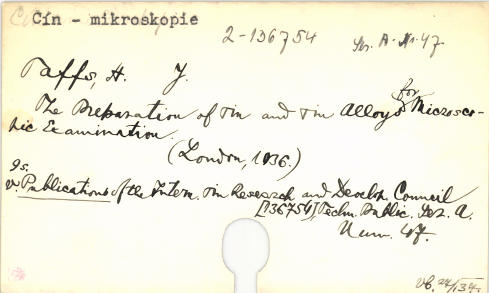 Cín - mikroskopie
2-136754
Ser. A. Nr. 47
Taffs, H. J.
The Preparation of Tin and Tin Alloys for Microsco-
pic Examination.
(London, 1936.)
gs.
Publications of the Intern. Tin Research and Develop. Council
[136754], Techn. Public. Ser. A.
Num. 47.